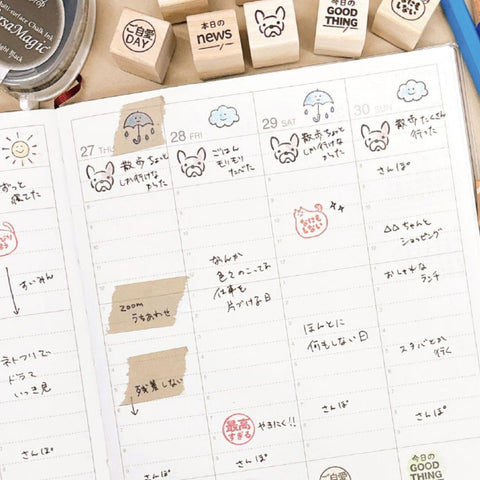 Multi-surface Chalk Ink
VersaMagic
ご自愛
DAY
本日の
news
今日の
GOOD
THING
なにも
しない
27 THU
28 FRI
29 SAT
30 SUN
散歩ちょっと
しか行けな
かった
ごはん
もりもり
たべた
散歩ちょっと
しか行けな
かった
散歩たくさん
行った
ずっと
寝てた
すいみん
ネトフリで
ドラマ
いっき見
さんぽ
zoom
うちあわせ
残業しない
さんぽ
なんか
色々のこってる
仕事を
片づける日
最高
すぎる
やきにく!!
さんぽ
なにも
しない
ほんとに
何もしない日
さんぽ
ご自愛
さんぽ
△△ちゃんと
ショッピング
おしゃれな
ランチ
スタバとか
行く
さんぽ
今日の
GOOD
THING